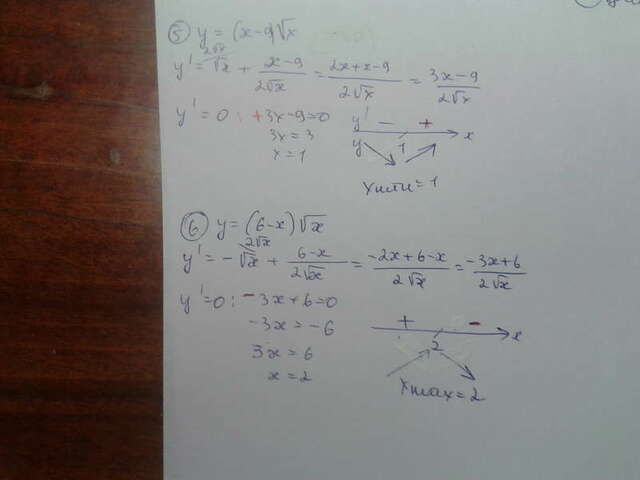 ⑤ y = (x-9)√x
y' = √x^{2√x} + (x-9)/(2√x) = (2x+x-9)/(2√x) = (3x-9)/(2√x)
y' = 0 : +3x-9=0 y' - +
3x = 3 y 1 x
x = 1
Xmin = 1
⑥ y = (6-x)√x
y' = -√x^{2√x} + (6-x)/(2√x) = (-2x+6-x)/(2√x) = (-3x+6)/(2√x)
y'=0 : -3x+6=0 + -
-3x = -6 2 x
3x = 6
x = 2 Xmax = 2